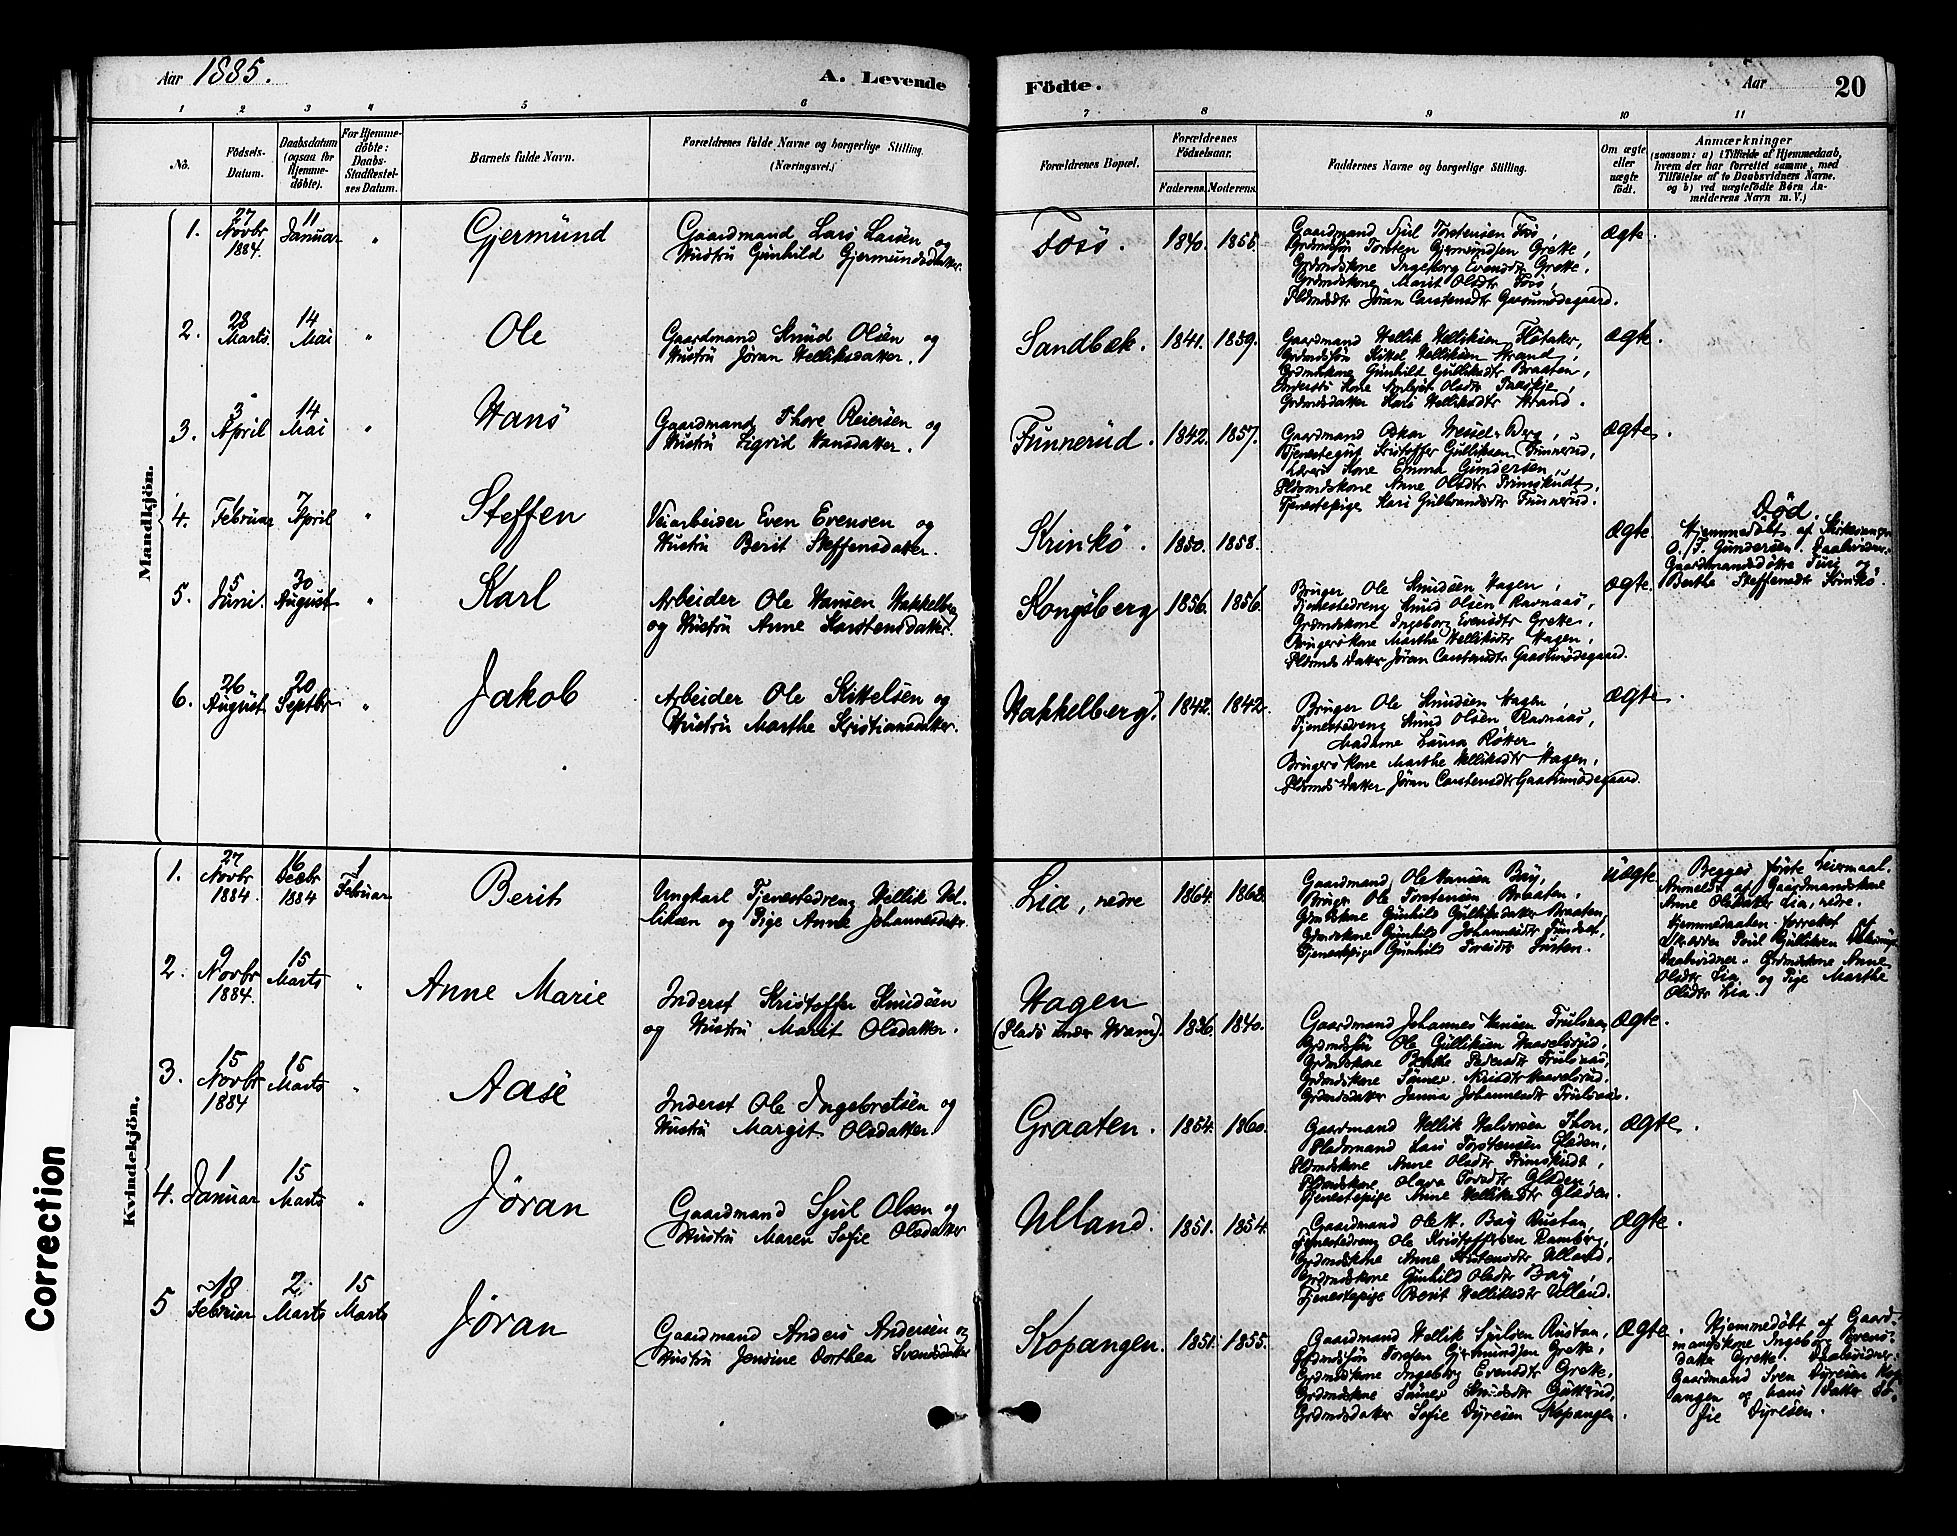 Aar 1885.
A. Levende
Födte.
Aar
20
1 2 3 4 5 6 7 8 9 10 11
No.
Födsels-Datum.
Daabsdatum (ogsaa for Hjemme-döbte).
For Hjemme-döbte: Daabs-Stadfæstel-ses Datum.
Barnets fulde Navn.
Forældrenes fulde Navne og borgerlige Stilling.
(Næringsvei.)
Forældrenes Bopæl.
Forældrenes Födselsaar.
Faderens. Moderens.
Faddernes Navne og borgerlige Stilling.
Om ægte eller uægte födt.
Anmærkninger
(saasom: a) i Tilfælde af Hjemmedaab,
hvem der har forrettet samme, med
Tilföielse af to Daabsvidners Navne.
og b) ved uægtefödte Börn An-
melderens Navn m. V.)
Mandkjön.
1. 27 Novbr 1884. 11 Januar " Gjermund
Gaardmand Lars Larsen og
Hustru Gunhild Gjermundsdatter.
Foss. 1840. 1855. ægte.
Gaardmand Sjul Torstensen Foss,
Grdmdsøn Torsten Gjermundsen Grette,
Grdmdskone Ingeborg Evensdtr Grette,
Grdmdskone Marit Olsdtr Foss,
2. 28 Marts. 14 Mai " Ole
Gaardmand Knud Olsen og
Hustru Jøran Helliksdatter.
Sandbæk. 1841. 1859. ægte.
Gaardmand Hellik Helliksen
Grdmdsøn Kittel Helliksen Strand,
Grdmdskone Gunhild Gulliksdtr Braaten,
Grdmdsdatter Kari Helliksdtr Strand.
3. 3 April 14 Mai " Hans
Gaardmand Thore Reiersen og
Hustru Sigrid Hansdatter.
Funnerud. 1842. 1857. ægte.
Gaardmand Oskar Wessel Berg,
Tjenestegut Kristoffer Gulliksen Funnerud,
Lærers Kone Emma Gundersen,
Pldsmdskone Anne Olsdtr
Tjenestepige Kari Gulbrandsdtr Funnerud.
4. Februar 7 April " Steffen
Veiarbeider Even Evensen og
Hustru Berit Steffensdatter.
Krinkö. 1850. 1858. ægte.
Død.
Hjemmedøbt af Kirkesanger
O. T. Gundersen. Daabsvidner:
Gaardmandsdøtre Turi og
Berthe Steffensdtr Krinkö.
5. 5 Juni. 30 August " Karl
Arbeider Ole Hansen Hakkelberg
og Hustru Anne Karstensdatter.
Kongsberg 1856. 1856. ægte.
Bruger Ole Knudsen Hagen,
Tjenestedreng Knud Olsen Ravnaas,
Grdmdskone Ingeborg Evensdtr Grette,
Brugerskone Marthe Helliksdtr Hagen,
Pldsmds Datter Jøran Carstensdtr
6. 26 August 20 Septbr. " Jakob
Arbeider Ole Kittelsen og
Hustru Marthe Kristiansdatter.
Hakkelberg. 1842. 1842. ægte.
Bruger Ole Knudsen Hagen,
Tjenestedreng Knud Olsen Ravnaas,
Madame Laura Røtter,
Brugerskone Marthe Helliksdtr Hagen,
Pldsmds Datter Jøran Carstensdtr
Kvindekjön.
1. 27 Novbr 1884. 16 Decbr 1884 1 Februar Berit
Ungkarl Tjenestedreng Hellik Hel-
liksen og Pige Anne Johannesdatter
Lia, nedre 1864. 1868. uægte.
Gaardmand Ole Hansen Bay,
Bruger Ole Torstensen Braaten,
Grdmdskone Gunhild Gulliksdatter Braaten,
Grdmdskone Gunhild Johannesdtr
Tjenestepige Gunhild
Begges første Leiermaal.
Anmeldt af Gaardmandskone
Anne Olsdatter Lia, nedre.
Hjemmedaaben forrettet af
Skrædder Poul Gulliksen
Daabsvidner: Grdmdskone Anne
Olsdtr Lia og Pige Marthe
Olsdtr Lia.
2. 9 Novbr 1884. 15 Marts " Anne Marie
Inderst Kristoffer Knudsen
og Hustru Marit Olsdatter.
Hagen
(Plads under Wam). 1836. 1840. ægte.
Gaardmand Johannes Hansen Trulsnaas,
Grdmdsøn Ole Gulliksen
Grdmdskone Berthe Pedersdtr Trulsnaas,
Grdmdsdatter Janna Johannesdtr Trulsnaas.
3. 15 Novbr 1884 15 Marts " Aase
Inderst Ole Ingebretsen og
Hustru Margit Olsdatter.
Graaten. 1854. 1860. ægte.
Gaardmand Hellik Halvorsen Thon,
Pladsmand Lars Torstensen Gladen,
Pldsmdskone Anne Olsdtr
Pldsmdskone Olava Toresdtr Gladen,
Tjenestepige Anne Helliksdtr Gladen.
4. 1 Januar 15 Marts " Jøran
Gaardmand Sjul Olsen og
Hustru Maren Sofie Olsdatter
Ulland. 1851. 1854. ægte.
Gaardmand Ole H. Bay Rustan,
Tjenestedreng Ole Kristoffersen Ramberg,
Grdmdskone Anne Knutensdtr Ulland,
Grdmdskone Gunhild Olsdtr Bay,
Tjenestepige Berit Helliksdtr Ulland.
5 18 Februar 2 Marts 15 Marts Jøran
Gaardmand Anders Andersen og
Hustru Jensine Dorthea Svendsdatter
Kopangen. 1851. 1855. ægte.
Gaardmand Hellik Sjulsen Rustan,
Grdmdsøn Torsten Gjermundsen Grette,
Grdmdskone Ingeborg Evensdtr Grette,
Grdmdsdatter Sofie Dyresen Kopangen.
Hjemmedøbt af Gaard-
mandskone Ingeborg Evens-
datter Grette. Daabsvidner:
Gaardmand Sven Dyresen Kop-
angen og hans Datter So-
fie Dyresen.
Correction